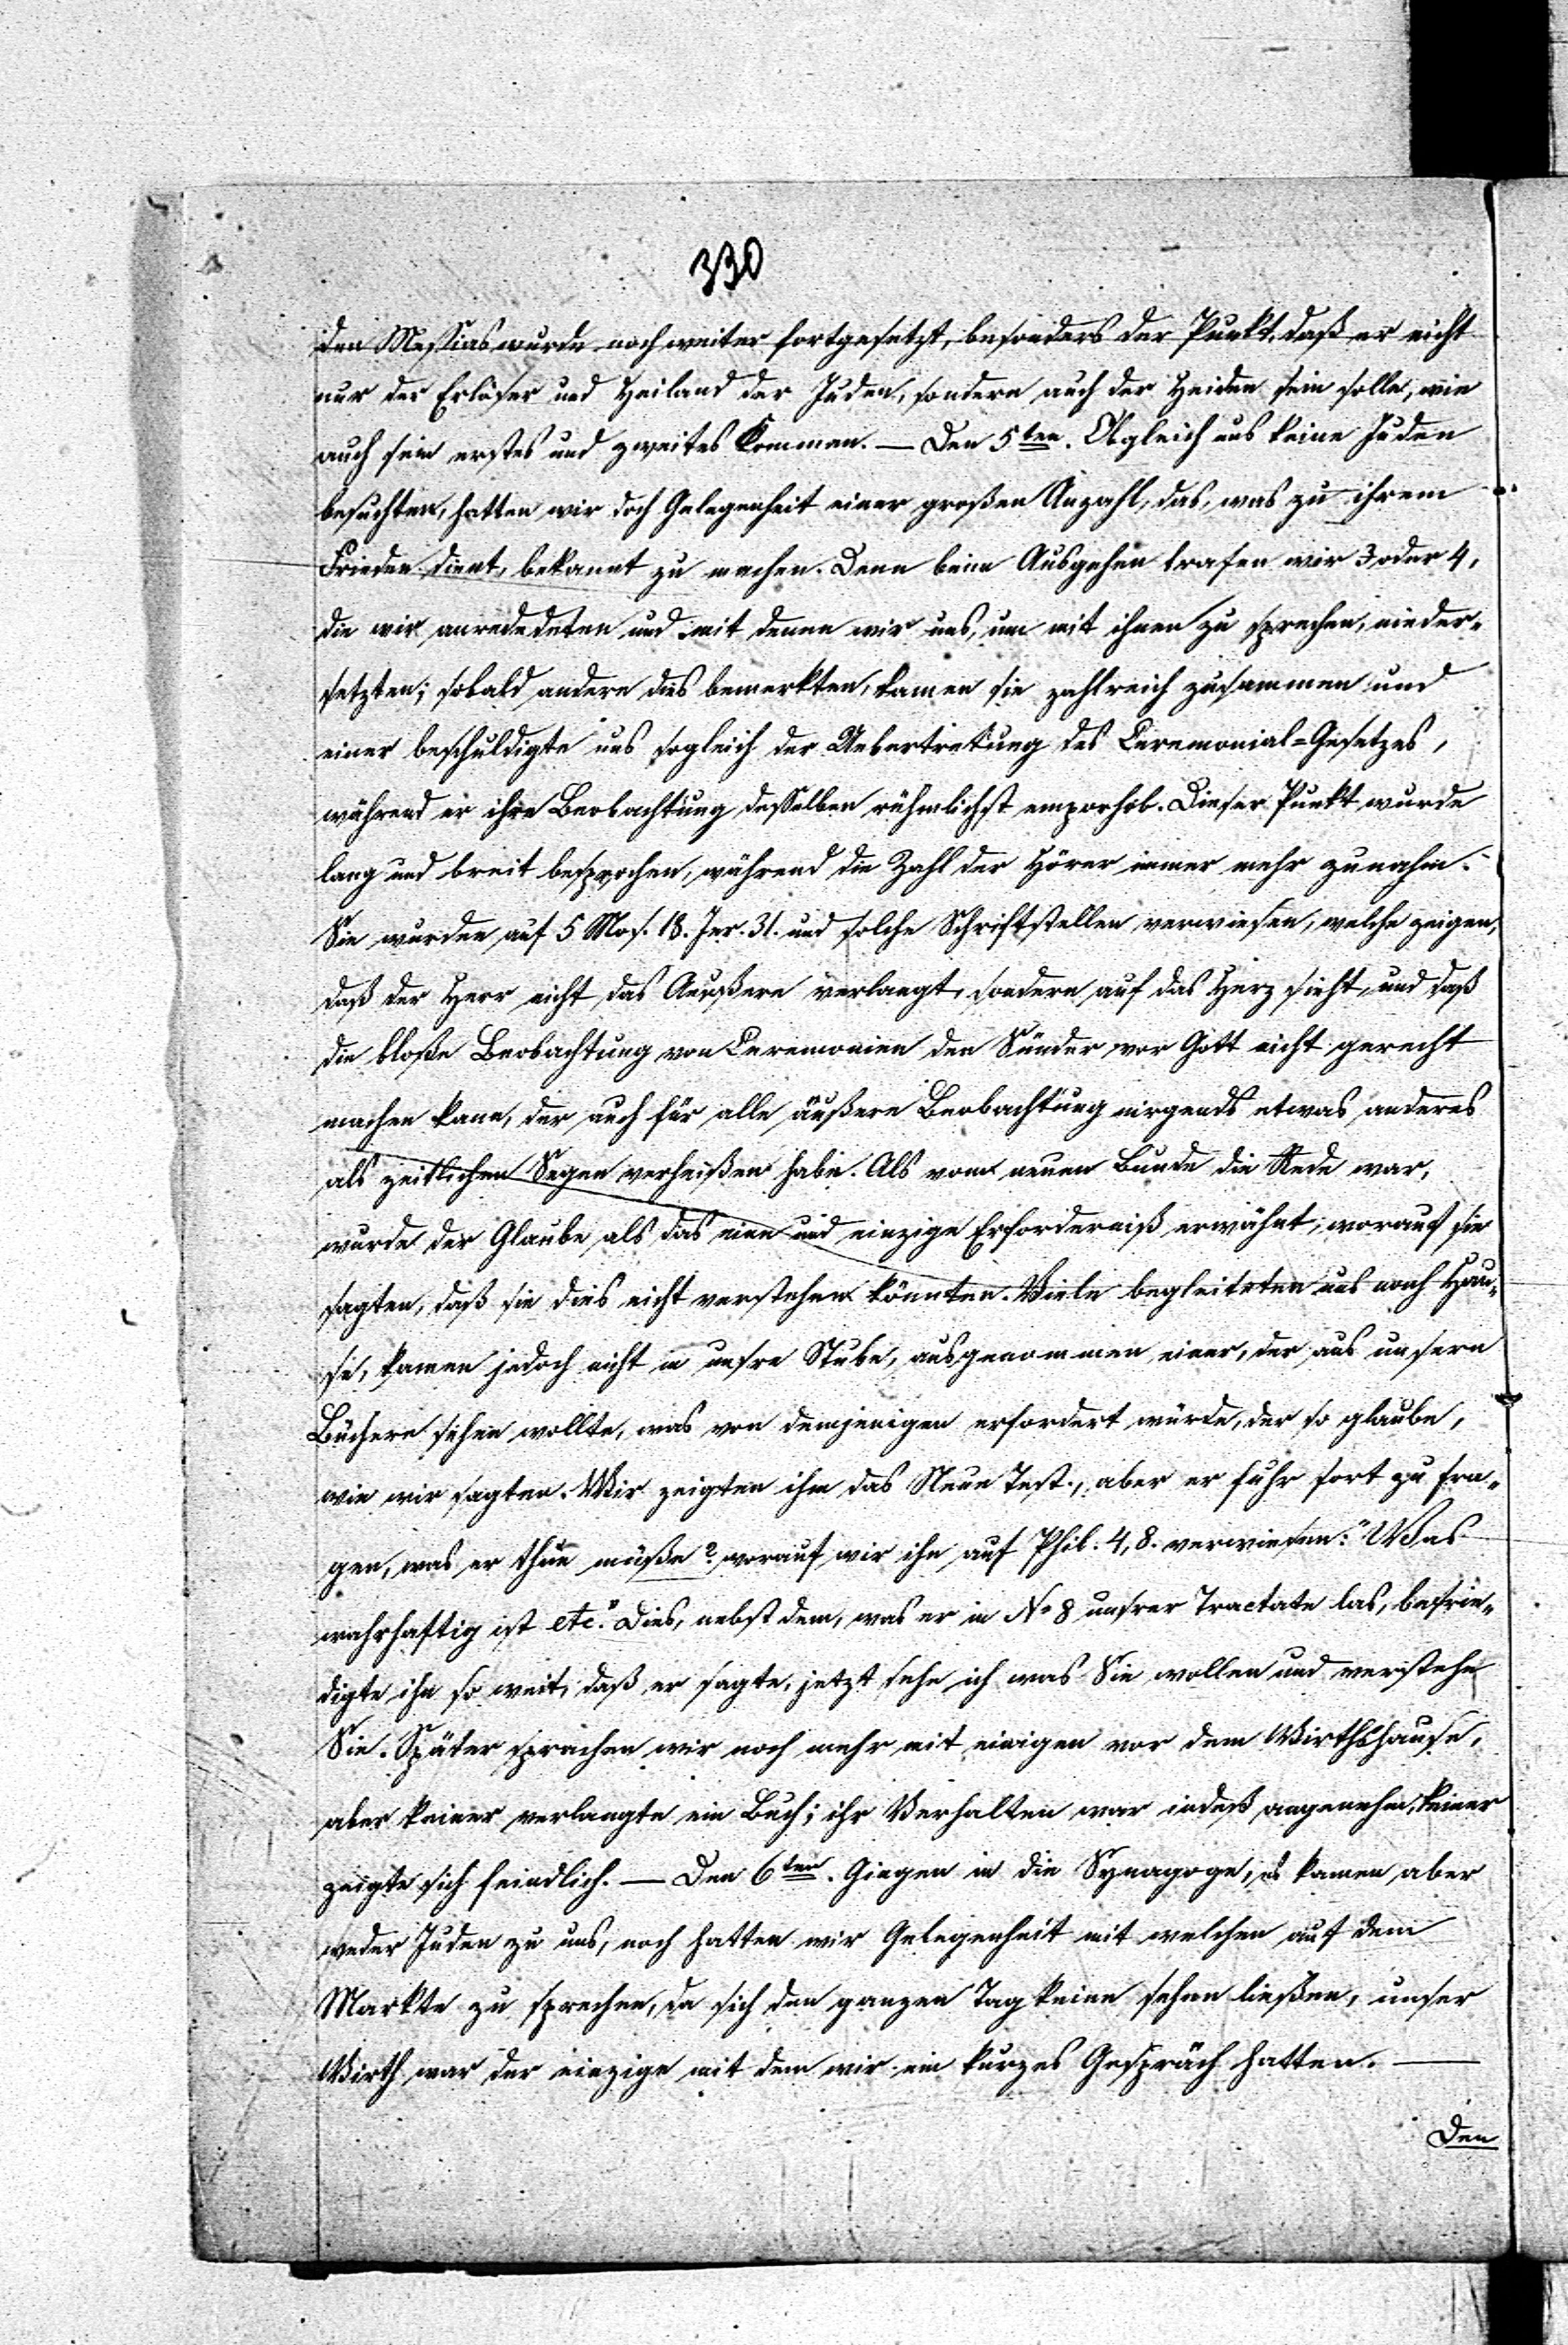 330
den Messias wurde noch weiter fortgesetzt, besonders der Punkt, daß er nicht
nur der Erlöser und Heiland der Juden, sondern auch der Heiden sein solle, wie
auch sein erstes und zweites Kommen. — Den 5ten. Obgleich uns keine Juden
besuchten, hatten wir doch Gelegenheit einer großen Anzahl, das, was zu ihrem
Frieden dient, bekannt zu machen. Denn beim Ausgehen trafen wir 3 oder 4,
die wir anredeten und mit denen wir uns, um mit ihnen zu sprechen, nieder-
setzten; sobald andere dies bemerkten, kamen sie zahlreich zusammen und
einer beschuldigte uns sogleich der Uebertretung des Ceremonial-Gesetzes,
während er ihre Beobachtung desselben rühmlichst emporhob. Dieser Punkt wurde
lang und breit besprochen, während die Zahl der Hörer immer mehr zunahm.
Sie wurden auf 5 Mos. 18. Jer. 31. und solche Schriftstellen verwiesen, welche zeigen,
daß der Herr nicht das Aeußere verlangt, sondern auf das Herz sieht, und daß
die bloße Beobachtung von Ceremonien den Sünder vor Gott nicht gerecht
machen kann, der auch für alle äußere Beobachtung nirgends etwas anderes
als zeitlichen Segen verheißen habe. Als vom neuen Bunde die Rede war,
wurde der Glaube als das eine und einzige Erforderniß erwähnt, worauf sie
sagten, daß sie dies nicht verstehen könnten. Viele begleiteten uns nach Hau-
se, kamen jedoch nicht in unsre Stube, ausgenommen einer, der aus unsern
Büchern sehen wollte, was von demjenigen erfordert würde, der so glaube,
wie wir sagten. Wir zeigten ihm das Neue Test., aber er fuhr fort zu fra-
gen, was er thun müße? worauf wir ihn auf Phil. 4,8. verwiesen: "Was
wahrhaftig ist etc." Dies, nebst dem, was er in No 8 unsrer Tractate las, befrie-
digte ihn so weit, daß er sagte, jetzt sehe ich was Sie wollen und verstehe
Sie. Später sprachen wir noch mehr mit einigen vor dem Wirthshause,
aber keiner verlangte ein Buch; ihr Verhalten war indeß angenehm, keiner
zeigte sich feindlich. — Den 6ten. Gingen in die Synagoge, es kamen aber
weder Juden zu uns, noch hatten wir Gelegenheit mit welchen auf dem
Markte zu sprechen, da sich den ganzen Tag keine sehen ließen, unser
Wirth war der einzige mit dem wir ein kurzes Gespräch hatten. —
Den